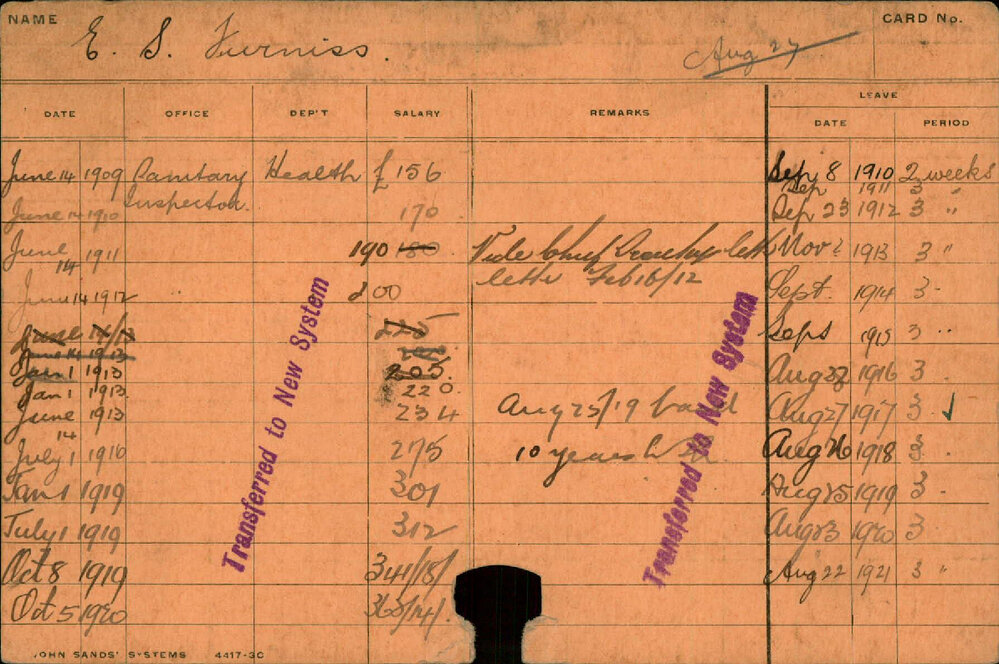 NAME E. S. Furniss. Aug 27 CARD No.
LEAVE
DATE OFFICE DEP'T SALARY REMARKS DATE PERIOD
June 14 1909 Sanitary Health £ 156 Sep 8 1910 2 weeks
Inspector. Sep 1911 3 "
June 14 1910 170 Sep 23 1912 3 "
June 14 1911 190 180 Vide Chief Nov 1913 3 "
letter Feb 16/12
June 14 1912 " 200 Sept. 1914 3 "
June 14/13 Sept 1915 3 "
June 14 1913
Jan 1 1913 205. Aug 1916 3 "
Jan 1 1913 220.
June 14 1913 234 Aug 25/19 Aug 27 1917 3 " ✓
July 1 1916 275 10 years Aug 26 1918 3 "
Jan 1 1919 301 Aug 25 1919 3 "
July 1 1919 312 Aug 23 1920 3
Oct 8 1919 341/18/ Aug 22 1921 3 "
Oct 5 1920 365/14/.
Transferred to New System
Transferred to New System
JOHN SANDS' SYSTEMS 4417-3C